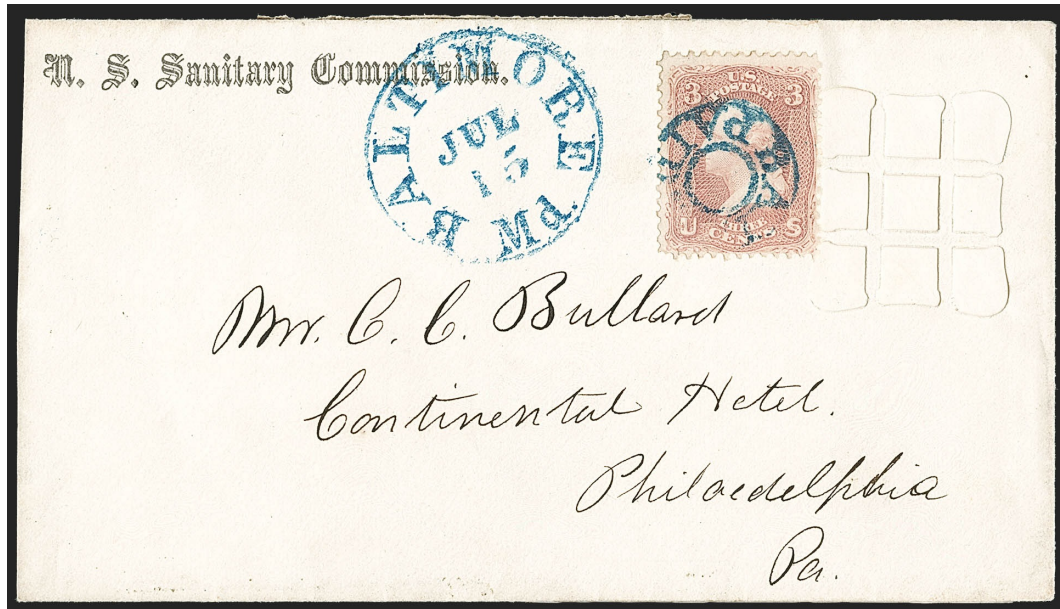 U. S. Sanitary Commission.
BALTIMORE PM
JUL
15
3 U.S. 3
POSTAGE
U THREE S
CENTS
Mr. C. C. Bullard
Continental Hotel.
Philadelphia
Pa.